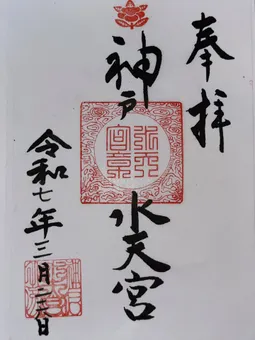 奉拝
神戸水天宮
令和七年三月 日